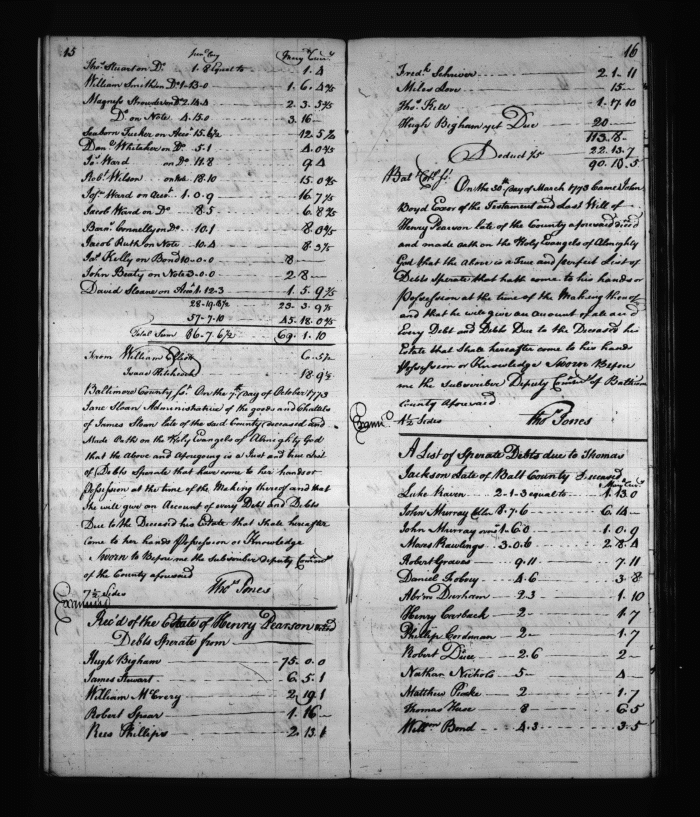 15
Curr.y
Thos. Stuart on Do. 1.8 Equal to 1.4
William Smith on Do. 1.13.0 1.6.4 4/5
Magness on Do. 2.14.4 2.3.5 1/5
Do. on Note 4.15.0 3.16—
Seaborn Tucker on Acct. 15.6 1/2 12.5 2/5
Danl. Whitaker on Do. 5.1 4.0 4/5
Jos. Ward on Do. 11.8 9.4
Robt. Wilson 18.10 15.0 4/5
Jos. Ward on Acct. 1.0.9 16.7 1/5
Jacob Ward on Do. 8.5 6.8 4/5
Barny. Connelly on Do. 10.1 8.0 4/5
Jacob on Note 10.4 8.3 1/5
Jas. Kelly on Bond 10.0.0 8 —
John Beaty on Note 3.0.0 2.8 —
David Sloane on Acct. 1.12.3 1.5.9 3/5
28.19.8 1/2 23.3.9 4/5
57.7.10 45.18.0 4/5
Total Sum 86.7.6 1/2 69.1.10
From William Elliott 6.5 1/2
Isaac Hitchcock 18.9 1/2
Baltimore County Ss. On the 7th. Day of October 1773
Jane Sloan Administratrix of the goods and Chattels
of James Sloan late of the said County deceased and
Made Oath on the Holy Evangels of Almighty God
that the Above and Aforegoing is a Just and true List
of Debts Sperate that have come to her hands or
Possession at the time of the Making thereof and that
She will give an Account of every Debt and Debts
Due to the Deceased his Estate that Shall hereafter
come to her hands Possession or Knowledge
Sworn to Before me the Subscriber Deputy Comisy.
of the County aforesaid
7 1/2 Sides Thos. Jones
Examined
Rec'd of the Estate of Henry Pearson
Debts Sperate from
Hugh Bigham 75.0.0
James Stewart 6.5.1
William McCrery 2.19.1
Robert Spear 1.16 —
Rees Phillips 2.13.1
16
Fredk. Schriver 2.1.11
Miles Love 15 —
Thos. Kite 1.17.10
Hugh Bigham yet Due 20 —
113.8 —
Deduct 1/5 22.13.7
90.10.5
Balt. Coty. Ss.
On the 30th. Day of March 1773 Came John
Boyd Exor of the Testament and Last Will of
Henry Pearson late of the County aforesaid deced
and made oath on the Holy Evangels of Almighty
God that the Above is a True and perfect List of
Debts Sperate that hath come to his hands or
Possession at the time of the Making thereof
and that he will give an Account of all and
Every Debt and Debts Due to the Deceased his
Estate that Shall hereafter come to his hands
Possession or Knowledge Sworn Before
me the Subscriber Deputy Comisy. of Baltimore
County aforesaid
4 1/2 Sides Thos. Jones
Examd.
A List of Sperate Debts due to Thomas
Jackson Late of Balt County Deceased
Luke Raven 2.1.3 equal to 1.13.0
John Murray 8.7.6 6.14 —
John Murray 1.6.0 1.0.9
Moses Rawlings 3.0.6 2.8.4
Robert Graves 9.11 7.11
Daniel 4.6 3.8
Abrm. Durham 2.3 1.10
Henry Carback 2 — 1.7
Phillip Cordman 2 — 1.7
Robert 2.6 2 —
Nathan Nichols 5 — 4 —
Matthew Peake 2 1.7
Thomas Hase 8 6.5
Willm. Bond 4.3 3.5